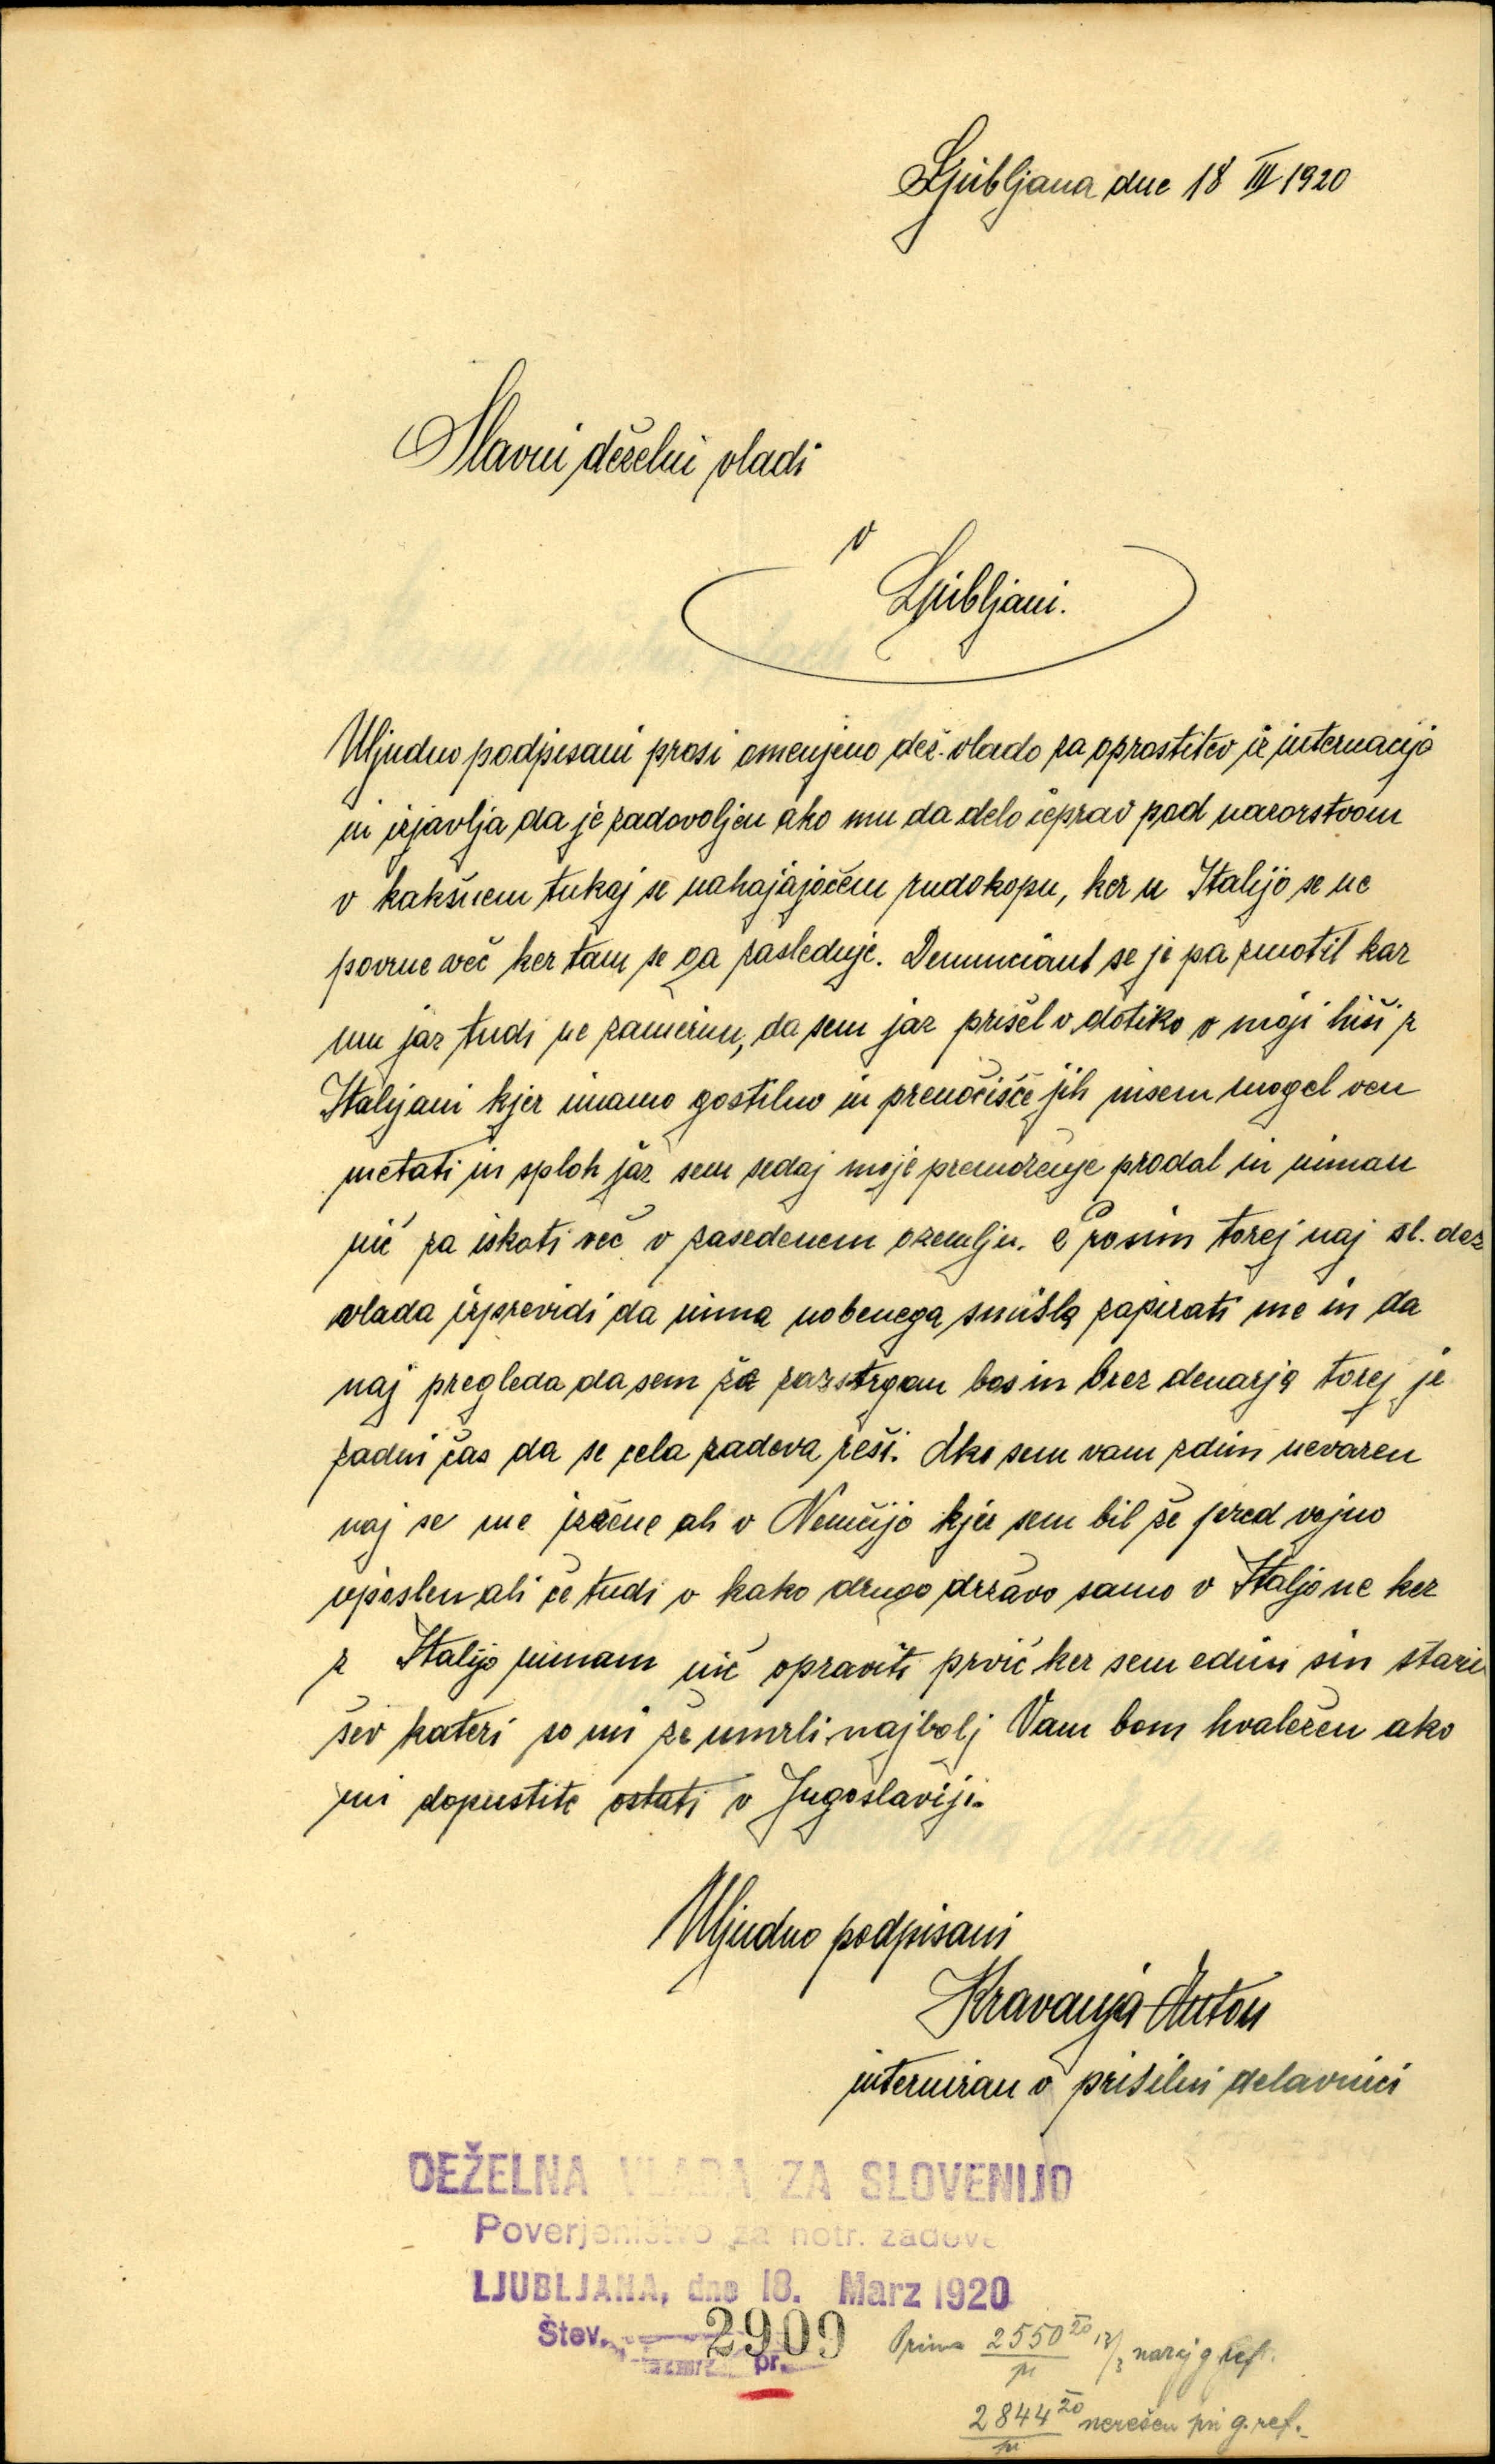 Ljubljana dne 18 III 1920
Slavni deželni vladi
v
Ljubljani.
Uljudno podpisani prosi omenjeno dež. vlado za oprostitev iz internacijo
in izjavlja da je zadovoljen ako mu da delo čeprav pod nazorstvom
v kakšnem tukaj se nahajajočem rudokopu, ker u Italijo se ne
povrne več ker tam se ga zasleduje. Denunciant se je pa zmotil kar
mu jaz tudi ne zamerim, da sem jaz prišel v dotiko v moji hiši z
Italijani kjer imamo gostilno in prenočišče jih nisem mogel ven
metati in sploh jaz sem sedaj moje premoženje prodal in niman
nič za iskati več v zasedenem ozemlju. Prosim torej naj sl. dež
vlada izprevidi da nima nobenega smisla zapirati me in da
naj pregleda da sem že razstrgan bos in brez denarja torej je
zadni čas da se cela zadeva reši. Ako sem vam zdim nevaren
naj se me izžene ali v Nemčijo kjer sem bil že pred vojno
vposlen ali če tudi v kako drugo državo samo v Italjo ne ker
z Italijo nimam nič opraviti prvič ker sem edini sin stari
šev kateri so mi že umrli najbolj Vam bom hvaležen ako
mi dopustite ostati v Jugoslaviji.
Uljudno podpisani
Kravanja Anton
interniran v prisilni delavnici
DEŽELNA VLADA ZA SLOVENIJO
Poverjeništvo za notr. zadeve
LJUBLJANA, dne 18. Marz 1920
Štev. 2909
pr.
Prima 2550 20 17/3 naraj g ref.
pr
2844 20 nerešen pri g. ref.
pr